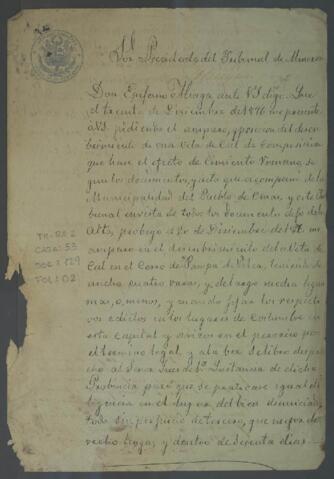 Sor Presidente del Tribunal de Mineria
Don Epifanio Aliaga ante VS digo: Que
el treinta de Diciembre de 1896 me presenté
á VS pidiendo el amparo, y posesion del descu-
brimiento de una Veta de Cal de composicion
que hace el efecto de Cimiento Romano, se
gun los documentos, y acta que acompañé de la
Municipalidad del Pueblo de, y este Tri-
bunal en vista de todos los documentos de fo
de Diciembre del
amparo en el descubrimiento de la Veta de
Cal en el Cerro de Pampa de, teniendo de
ancho cuatro varas, y de largo media legua
mas, o menos, y mandó fijar los respecti
vos edictos en los lugares de costumbre en
esta Capital y avisos en el periodico por
el termino legal, y a la vez se libro despa-
cho al Señor Juez de 1a Instancia de dicha
Provincia para que se practicase igual di
ligencia en el lugar del bien denunciado
todo sin perjuicio de tercero, que mejor de
recho tenga, y dentro de noventa dias
TM-RE 2
CAJA: 53
DOC: 129
FOL: 02